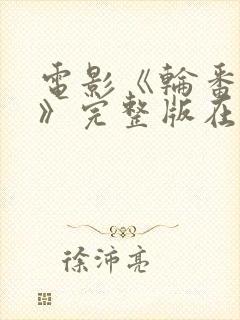 電影《輪番
》完整版在
徐沛亮